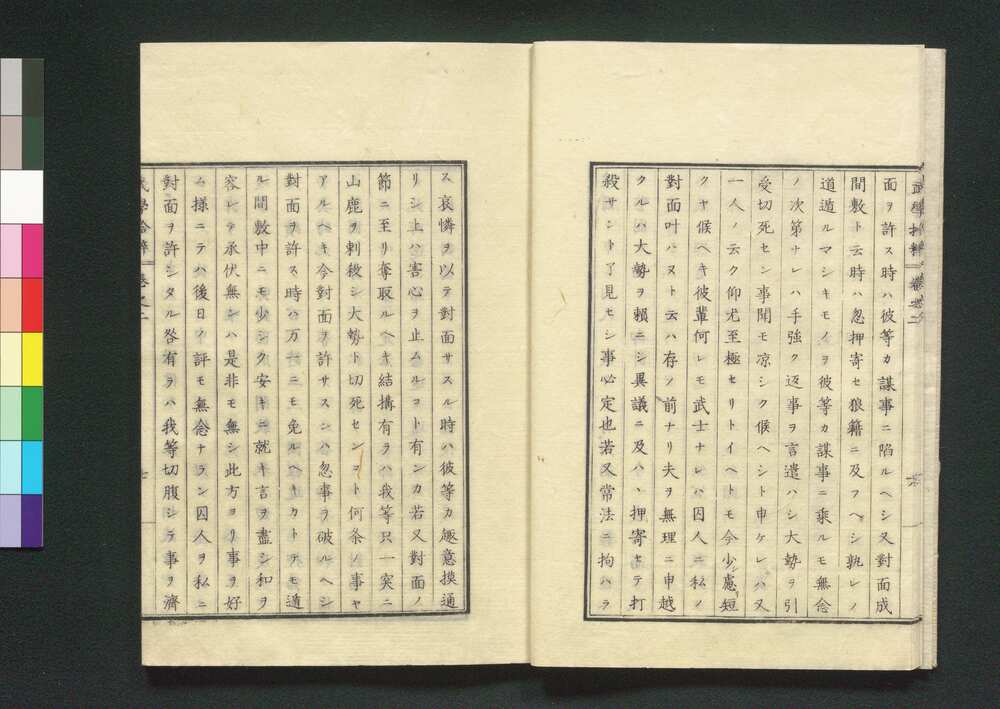 武學拾粹 卷之二
面ヲ許ス時ハ彼等カ謀事ニ陷ルヘシ又對面成
間敷ト云時ハ忽押寄セ狼籍ニ及フヘシ孰レノ
道遁ルマシキモノヲ彼等カ謀事ニ乘ルモ無念
ノ次第ナレハ手強ク返事ヲ言遣ハシ大勢ヲ引
受切死セン事聞モ凉シク候ヘシト申ケレハ又
一人ノ云ク仰尤至極セリトイヘトモ今少シ慮短
クヤ候ヘキ彼輩何レモ武士ナレハ囚人ニ私ノ
對面叶ハヌト云ハ存ノ前ナリ夫ヲ無理ニ申越
クルハ大勢ヲ賴ニシ異議ニ及ハヽ押寄セテ打
殺サント了見セシ事必定也若又常法ニ拘ハラ
ス哀憐ヲ以テ對面サスル時ハ彼等カ趣意摸通
リシ上ハ害心ヲ止ムルコト有ンカ若又對面ノ
節ニ至リ奪取ルヘキ結搆有ラハ我等只一突ニ
山鹿ヲ刺殺シ大勢ト切死センヿ何条ノ事ヤ
アルヘキ今對面ヲ許サスンハ忽事ヲ破ルヘシ
對面ヲ許ス時ハ万一ニモ免ルヘキカトテモ遁
ル間敷中ニモ少シク安キニ就キ言ヲ盡シ和ヲ
容レテ承伏無ンハ是非モ無シ此方ヨリ事ヲ好
ム樣ニテハ後日ノ評モ無念ナラン囚人ヲ私ニ
對面ヲ許シタル咎有ラハ我等切腹シテ事ヲ濟
武學拾粹 卷之二
七